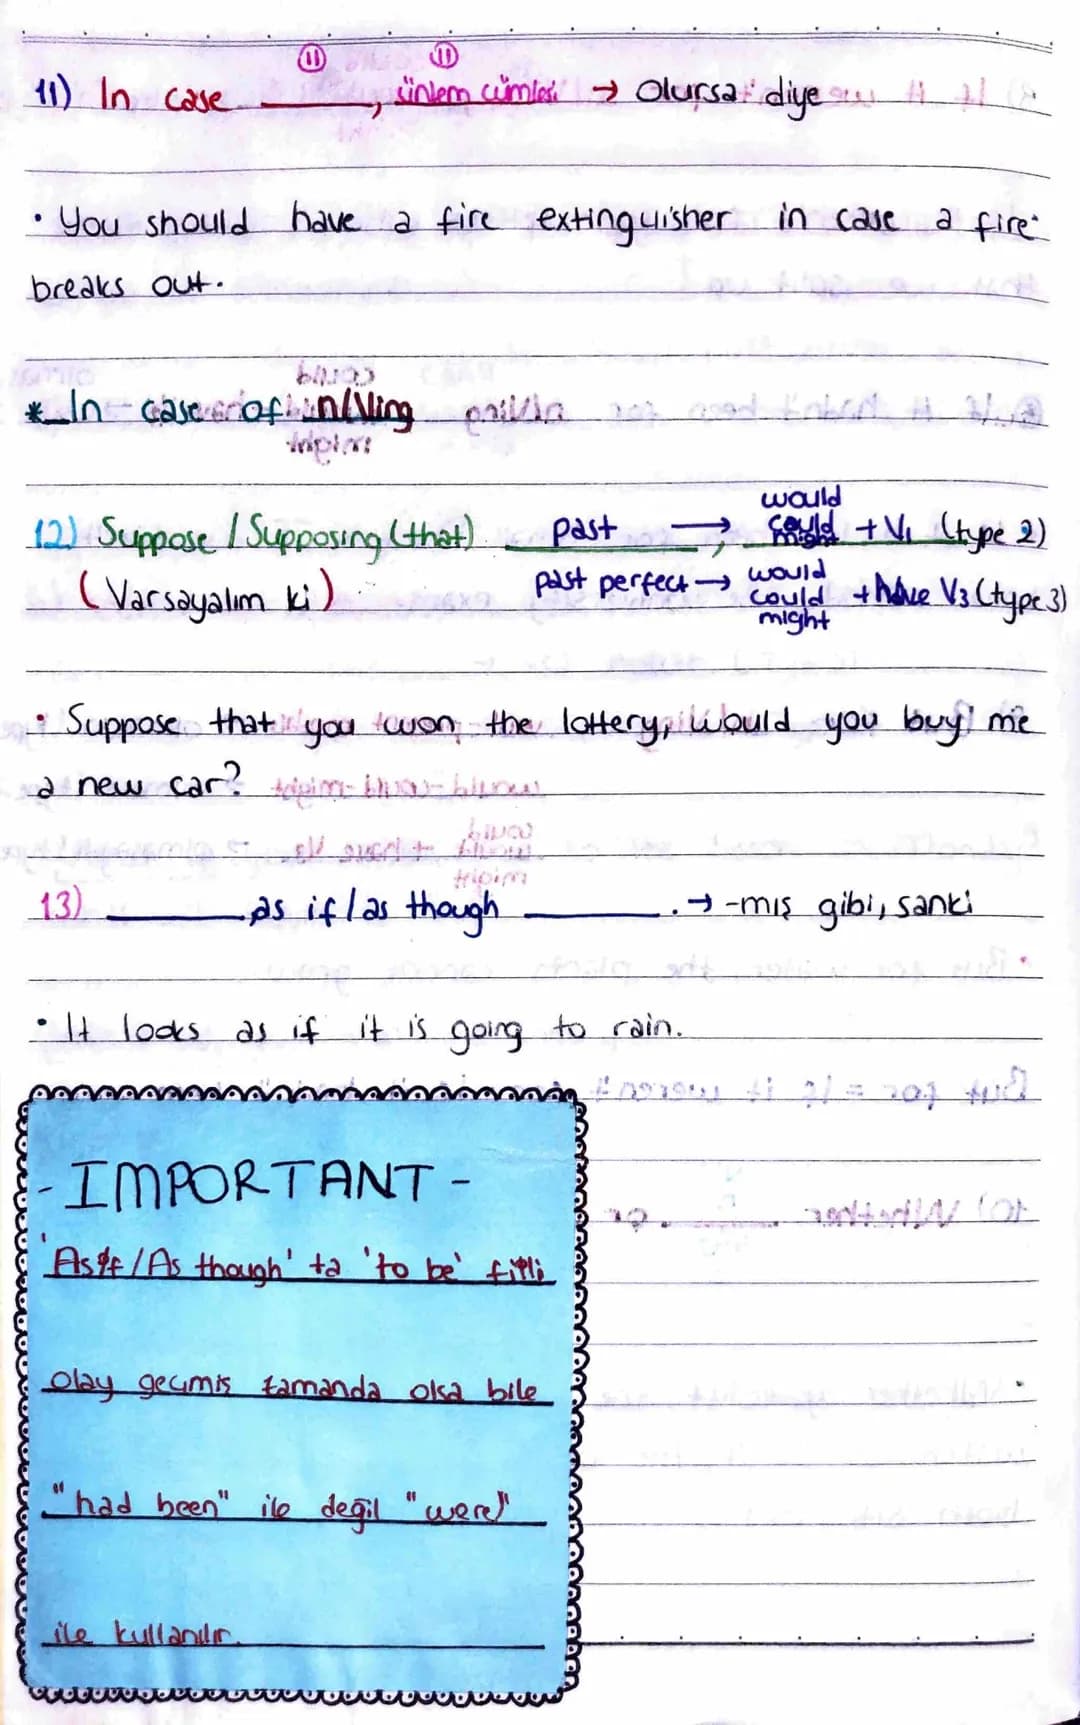 11) In case ______, ünlem cümlesi → Olursa diye
• You should have a fire extinguisher in case a fire
breaks out.
* In case of n/Ving
12) Suppose / Supposing (that) past → would could might + V1 (type 2)
(Varsayalım ki) past perfect → would could might + have V3 (type 3)
• Suppose that you won the lottery, would you buy me
a new car?
13) ______ as if / as though ______. → -mış gibi, sanki
• It looks as if it is going to rain.
- IMPORTANT -
'As if / As though' ta 'to be' fiili
olay geçmiş zamanda olsa bile
"had been" ile değil "were"
ile kullanılır.